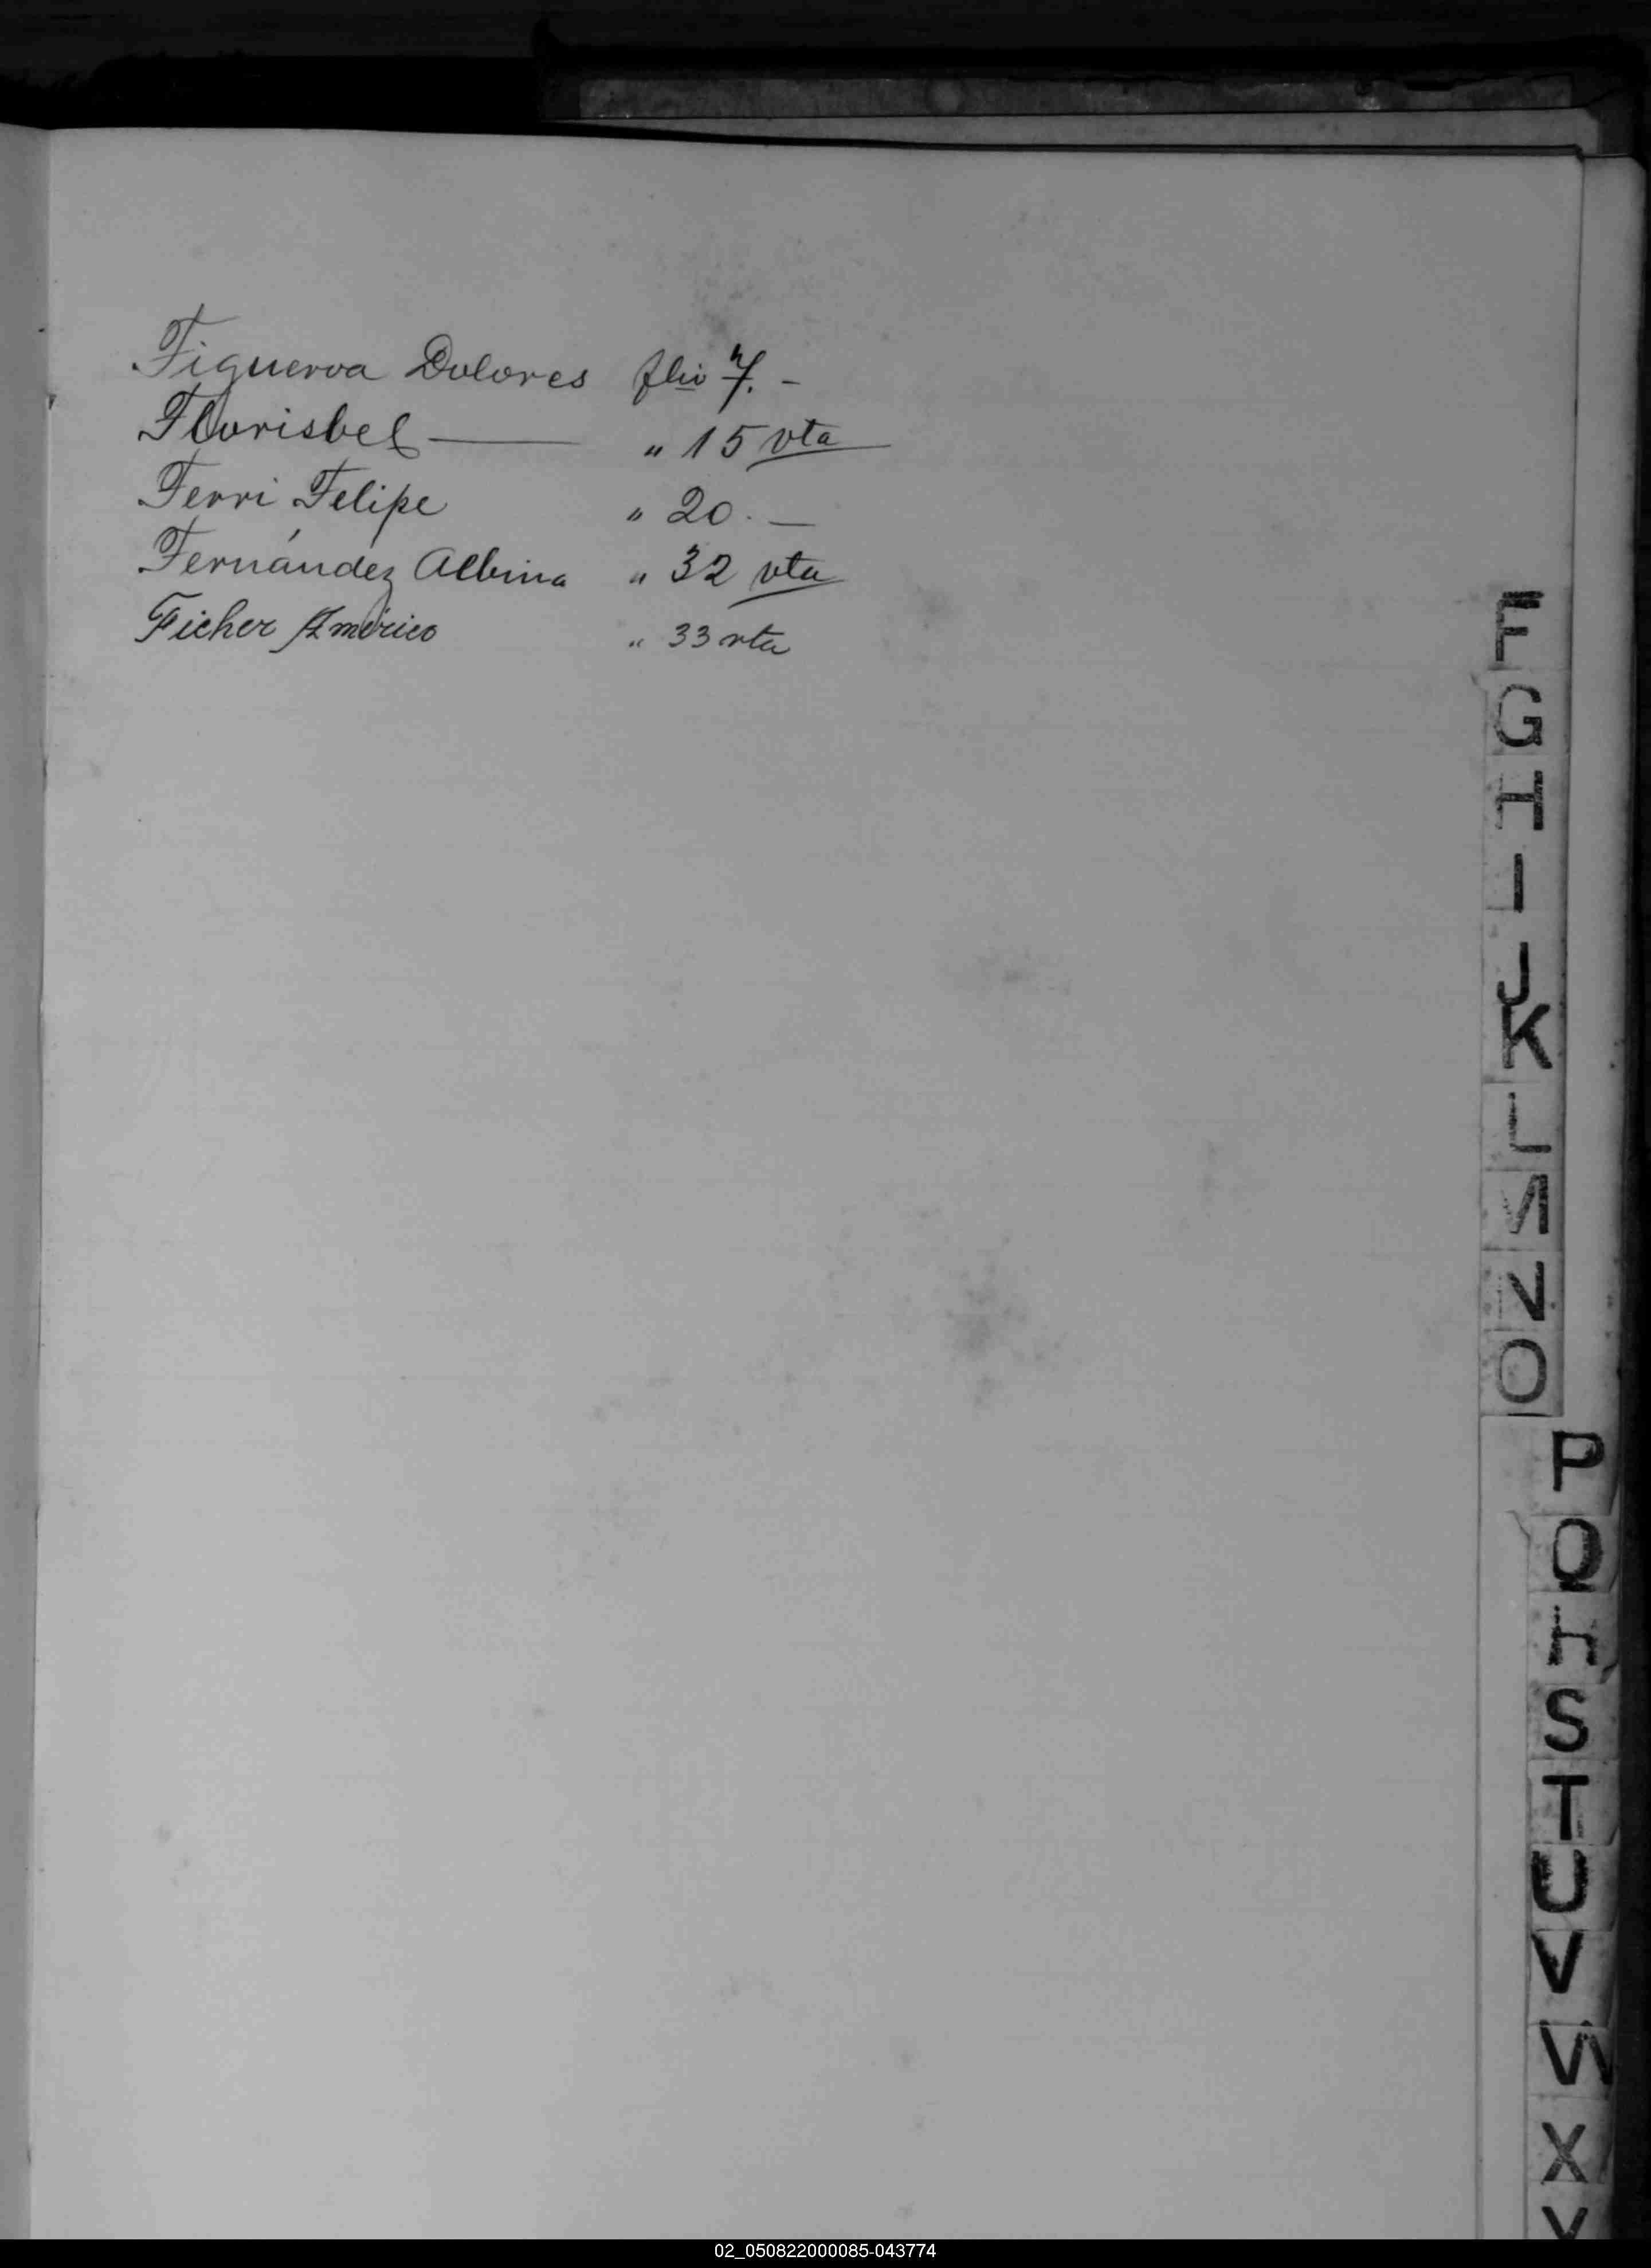 Figueroa Dolores flio 7. -
Florisbel — " 15 vta
Ferri Felipe " 20. —
Fernández Albina " 32 vta
Ficher Américo " 33 vta
F
G
H
I
J
K
L
M
N
O
P
Q
R
S
T
U
V
W
X
Y
02_050822000085-043774